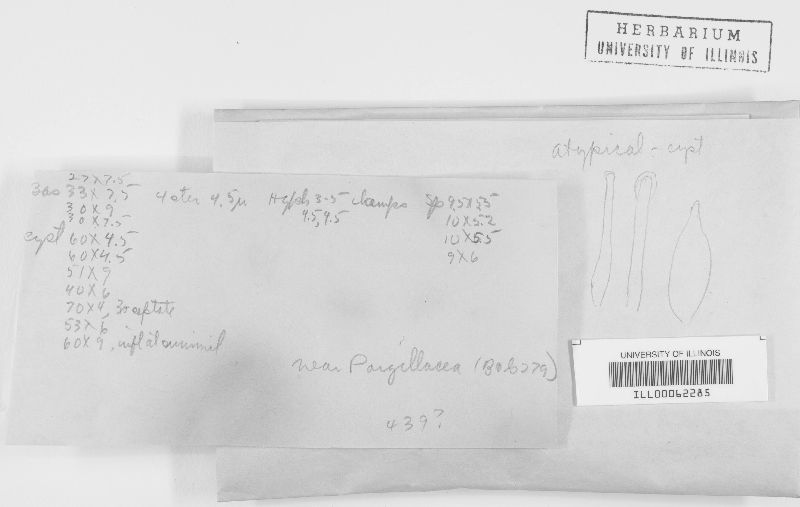 HERBARIUM
UNIVERSITY OF ILLINOIS
atypical - cyst
27 X 7.5
Bas 33 X 7.5 4 ster 4.5µ Hyph 3-5 clamps Sp 9.5 X 5.5
30 X 9 4.5, 9.5 10 X 5.2
30 X 7.5 10 X 5.5
cyst 60 X 4.5 9 X 6
60 X 4.5
51 X 9
40 X 6
70 X 4, 3 septate
53 X 6
60 X 9,
near Pargillacea (Bob 279)
439?
UNIVERSITY OF ILLINOIS
ILL00062285